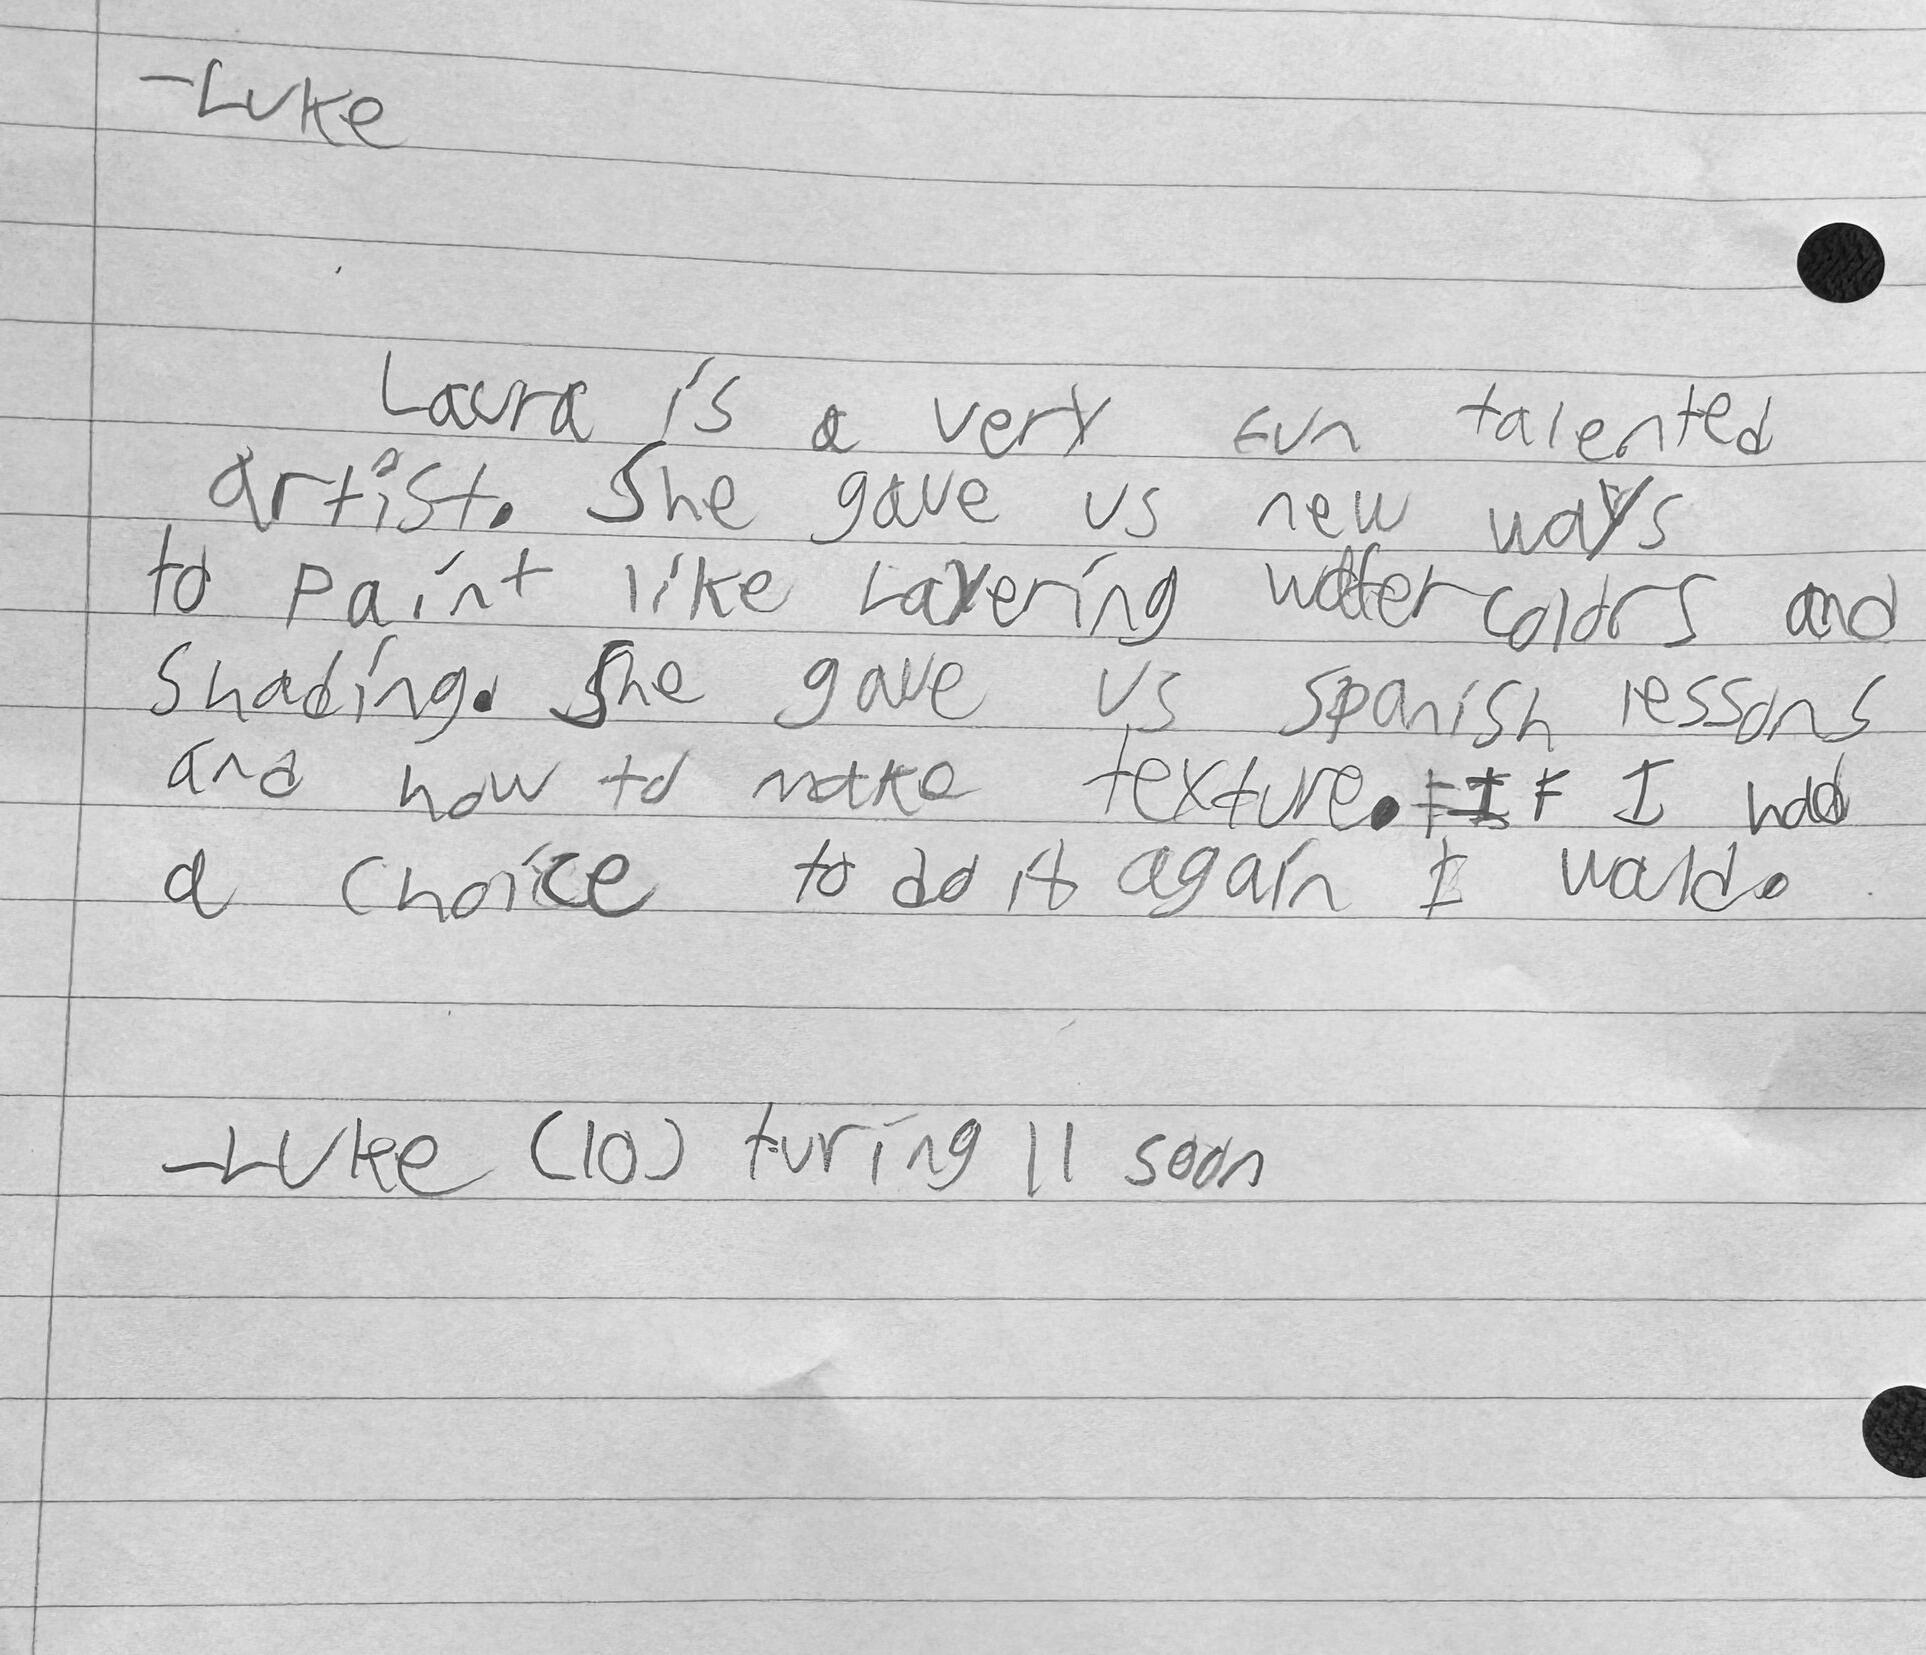 -Luke
Laura is a very fun talented
artist. She gave us new ways
to paint like Layering water colors and
shading. She gave us spanish lessons
and how to make texture. If I had
a choice to do it again I would.
-Luke (10) turing 11 soon